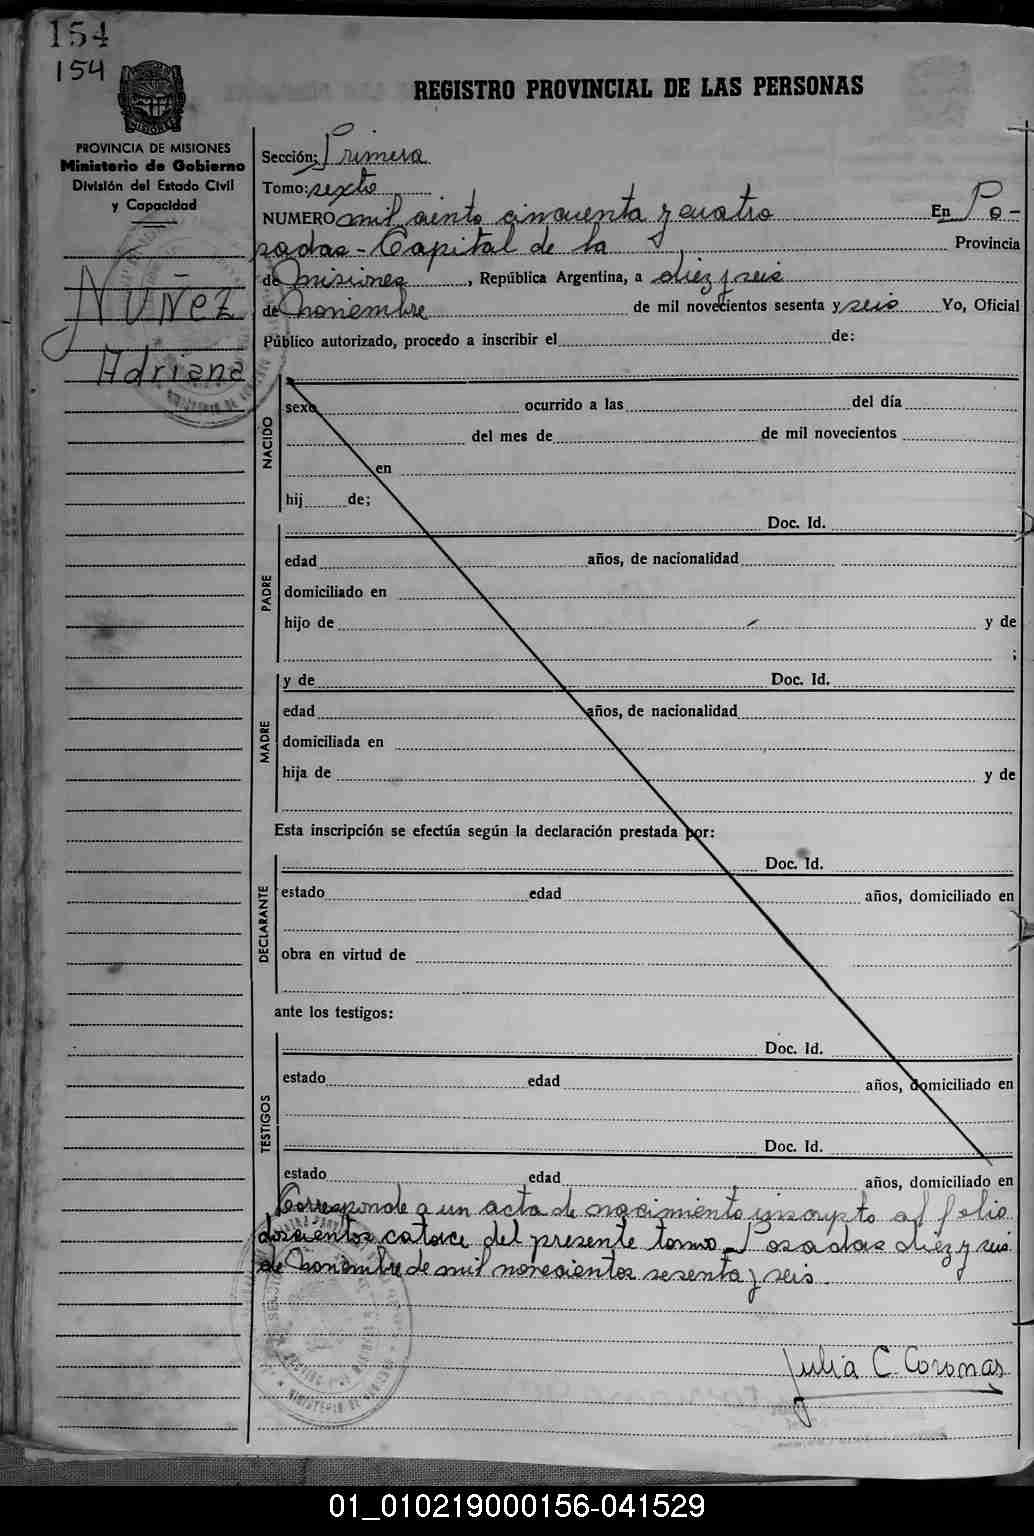 154
154
REGISTRO PROVINCIAL DE LAS PERSONAS
PROVINCIA DE MISIONES
Ministerio de Gobierno
División del Estado Civil
y Capacidad
Nuñez
Adriana
Sección: Primera
Tomo: sexto
NUMERO mil ciento cincuenta y cuatro En Po-
sadas - Capital de la Provincia
de Misiones, República Argentina, a diez y seis
de Noviembre de mil novecientos sesenta y seis Yo, Oficial
Público autorizado, procedo a inscribir el de:
NACIDO
sexo ocurrido a las del día
del mes de de mil novecientos
en
hij de;
PADRE
Doc. Id.
edad años, de nacionalidad
domiciliado en
hijo de y de
;
MADRE
y de Doc. Id.
edad años, de nacionalidad
domiciliada en
hija de y de
Esta inscripción se efectúa según la declaración prestada por:
DECLARANTE
Doc. Id.
estado edad años, domiciliado en
obra en virtud de
ante los testigos:
TESTIGOS
Doc. Id.
estado edad años, domiciliado en
Doc. Id.
estado edad años, domiciliado en
Corresponde a un acta de nacimiento inscripto al folio
doscientos catorce del presente tomo - Posadas diez y seis
de Noviembre de mil novecientos sesenta y seis.
Julia C. Coronas
01_010219000156-041529